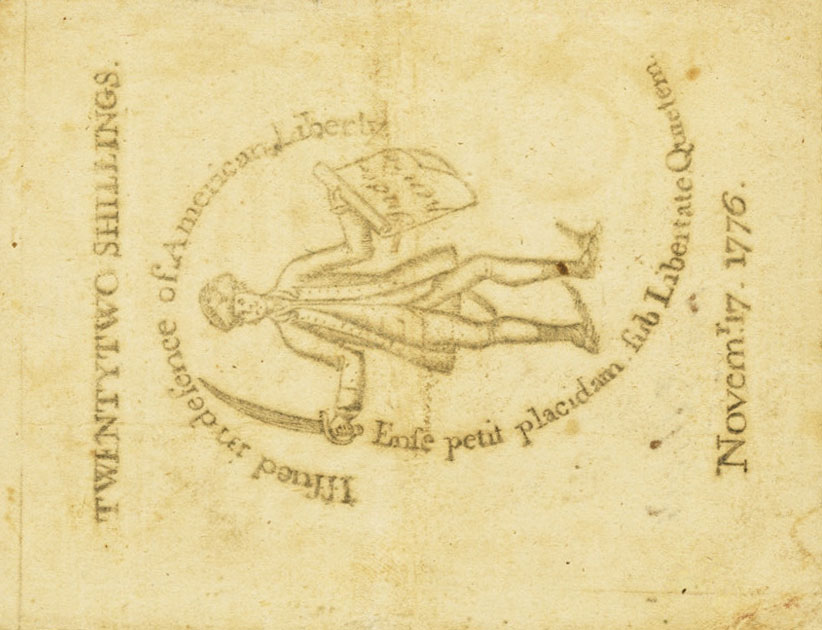 TWENTYTWO SHILLINGS.
Iſſued in defence of American Liberty
Enſe petit placidam ſub Libertate Quietem
Novemr. 17. 1776.